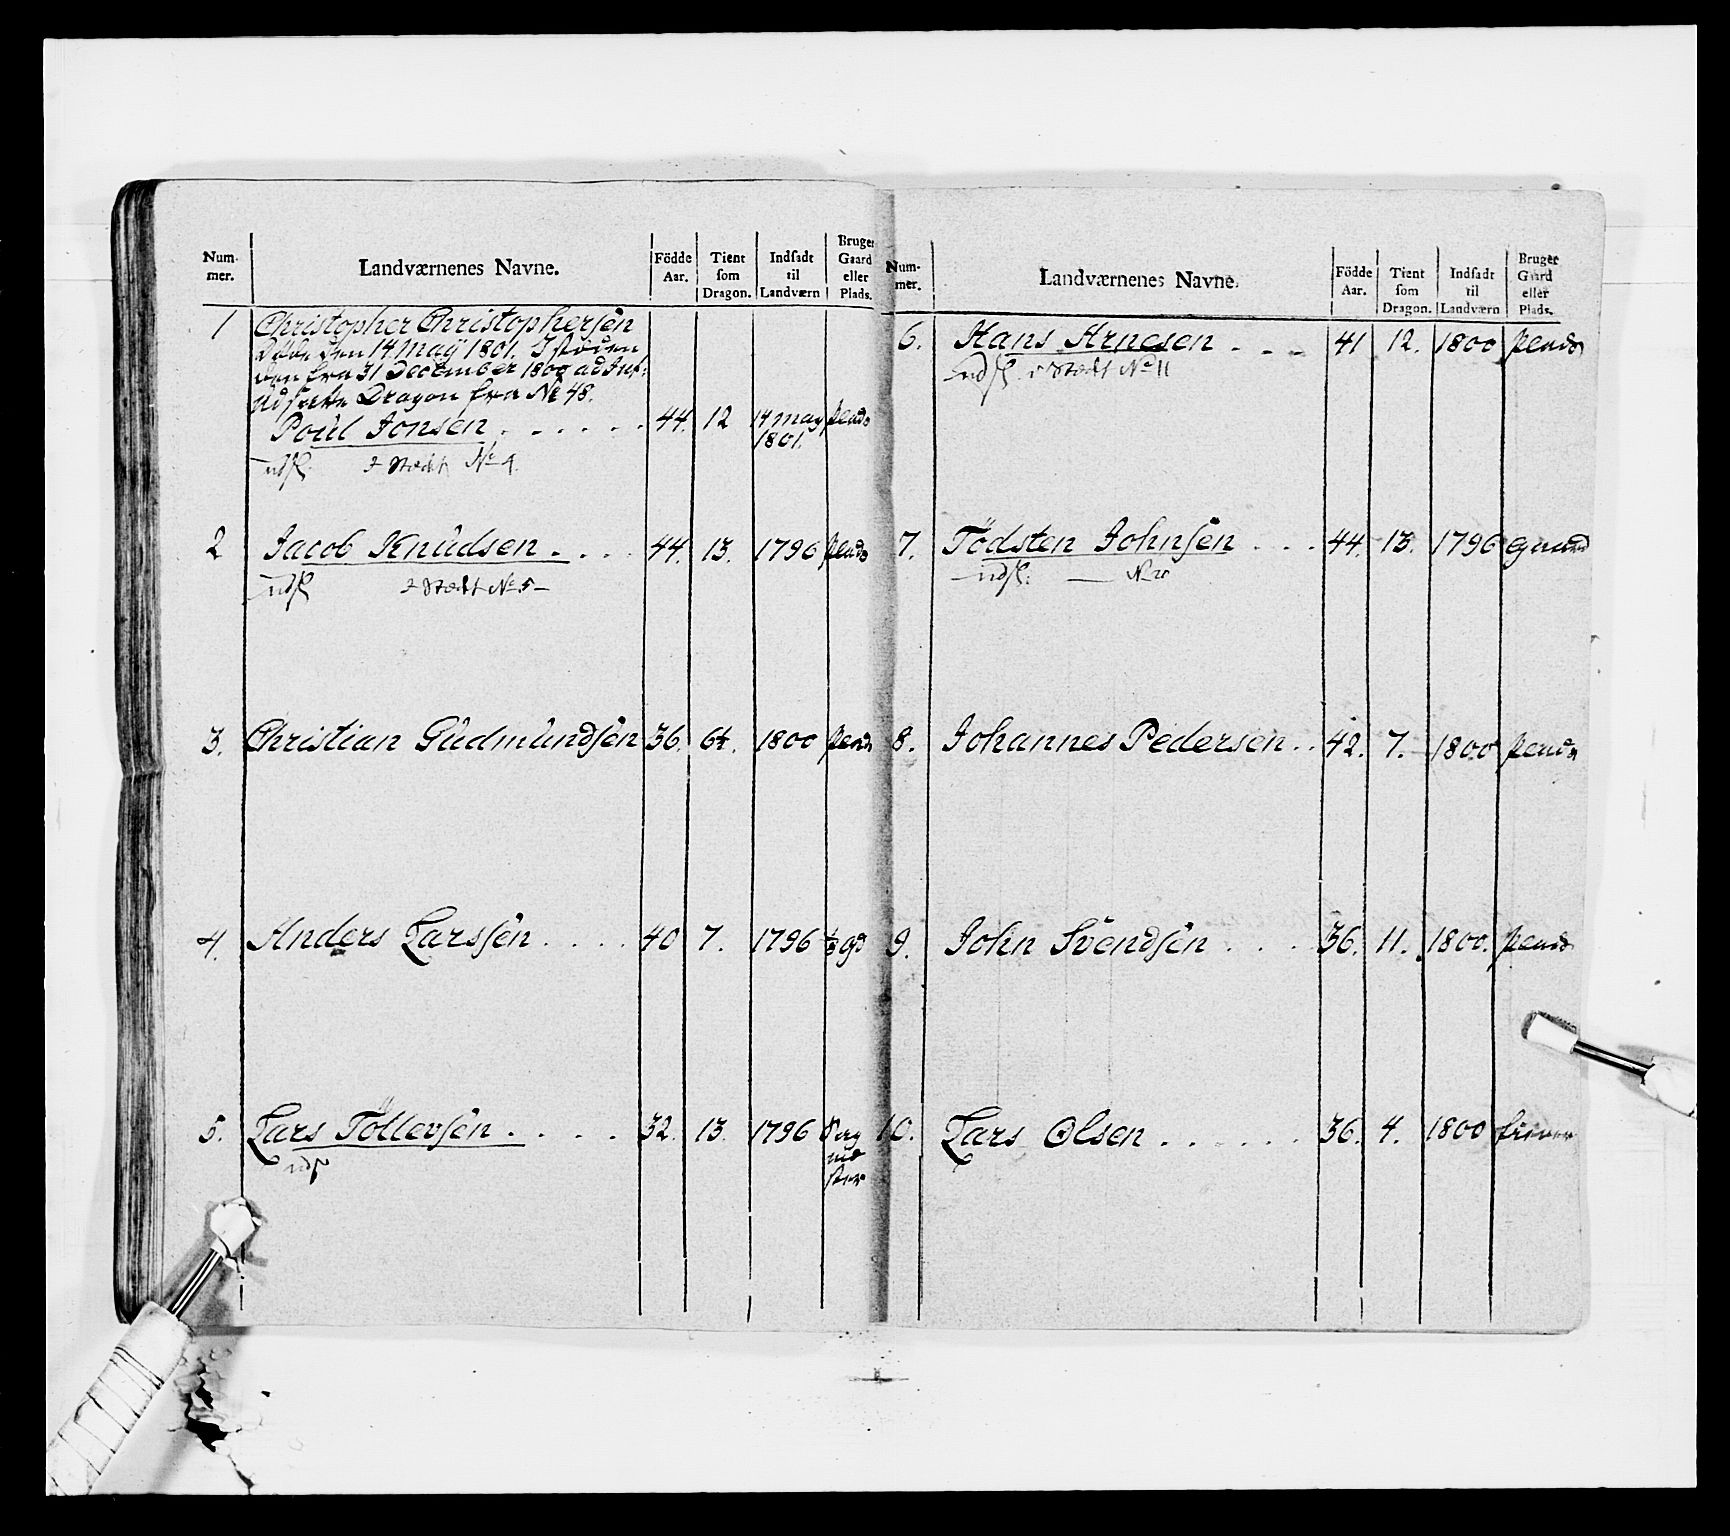 Num-
mer.
Landværnenes Navne.
Födde
Aar.
Tient
som
Dragon.
Indsadt
til
Landværn
Bruger
Gaard
eller
Plads.
1 Christopher Christophersen
Døde den 14 Maÿ 1801. I støden
den fra 31 December 1800
Udsatte Dragon fra No 48.
Poul Jonsen . . . . . . 44. 12 14 may
1801.
uds. I Stædt No 4.
2 Jacob Knudsen . . . . 44. 13. 1796
uds. I Stædt No 5
3. Christian Gudmundsen 36. 6½. 1800
4. Anders Larssen . . . . 40 7. 1796 ½ gd
5. Lars Töllevsen . . . . 32. 13. 1796
uds
Num-
mer.
Landværnenes Navne.
Födde
Aar.
Tient
som
Dragon.
Indsadt
til
Landværn
Bruger
Gaard
eller
Plads.
6. Hans Arnesen . . . 41 12. 1800
uds. i Stædt No 11
7. Tödsten Johnsen . . . 44. 13. 1796 Gaard
uds:
8. Johannes Pedersen . . 42. 7. 1800
9. John Svendsen . . . . 36. 11. 1800.
10. Lars Olsen . . . . . . 36. 4. 1800